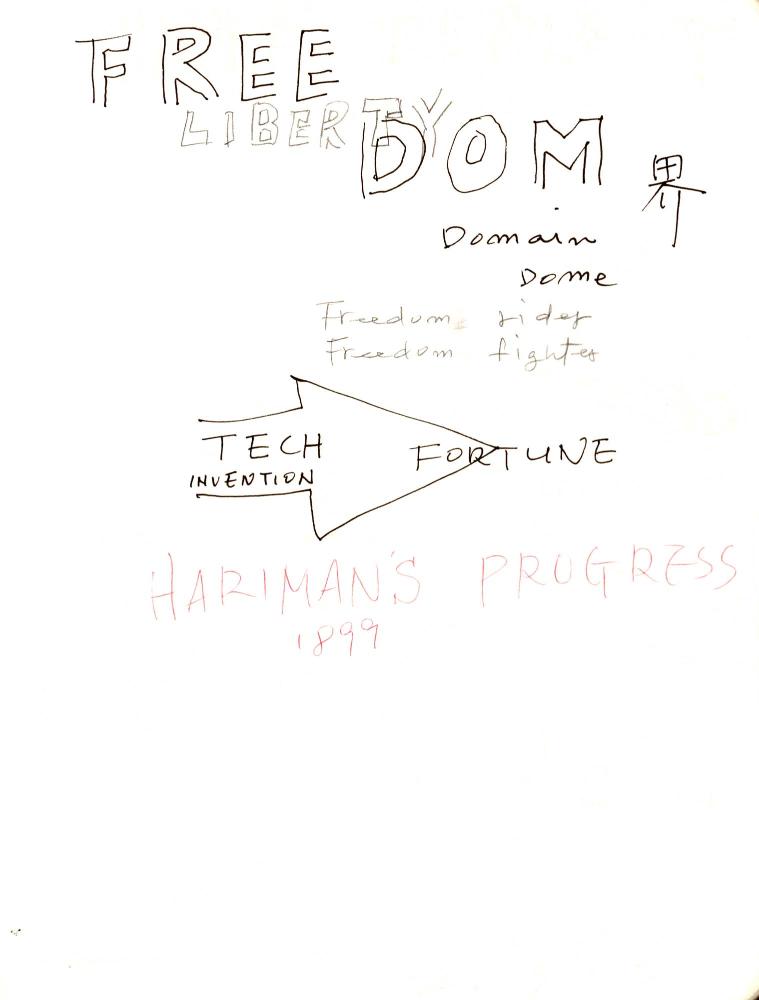 FREE
LIBERTY
DOM 界
Domain
Dome
Freedom rider
Freedom fighter
TECH FORTUNE
INVENTION
HARIMAN'S PROGRESS
1899